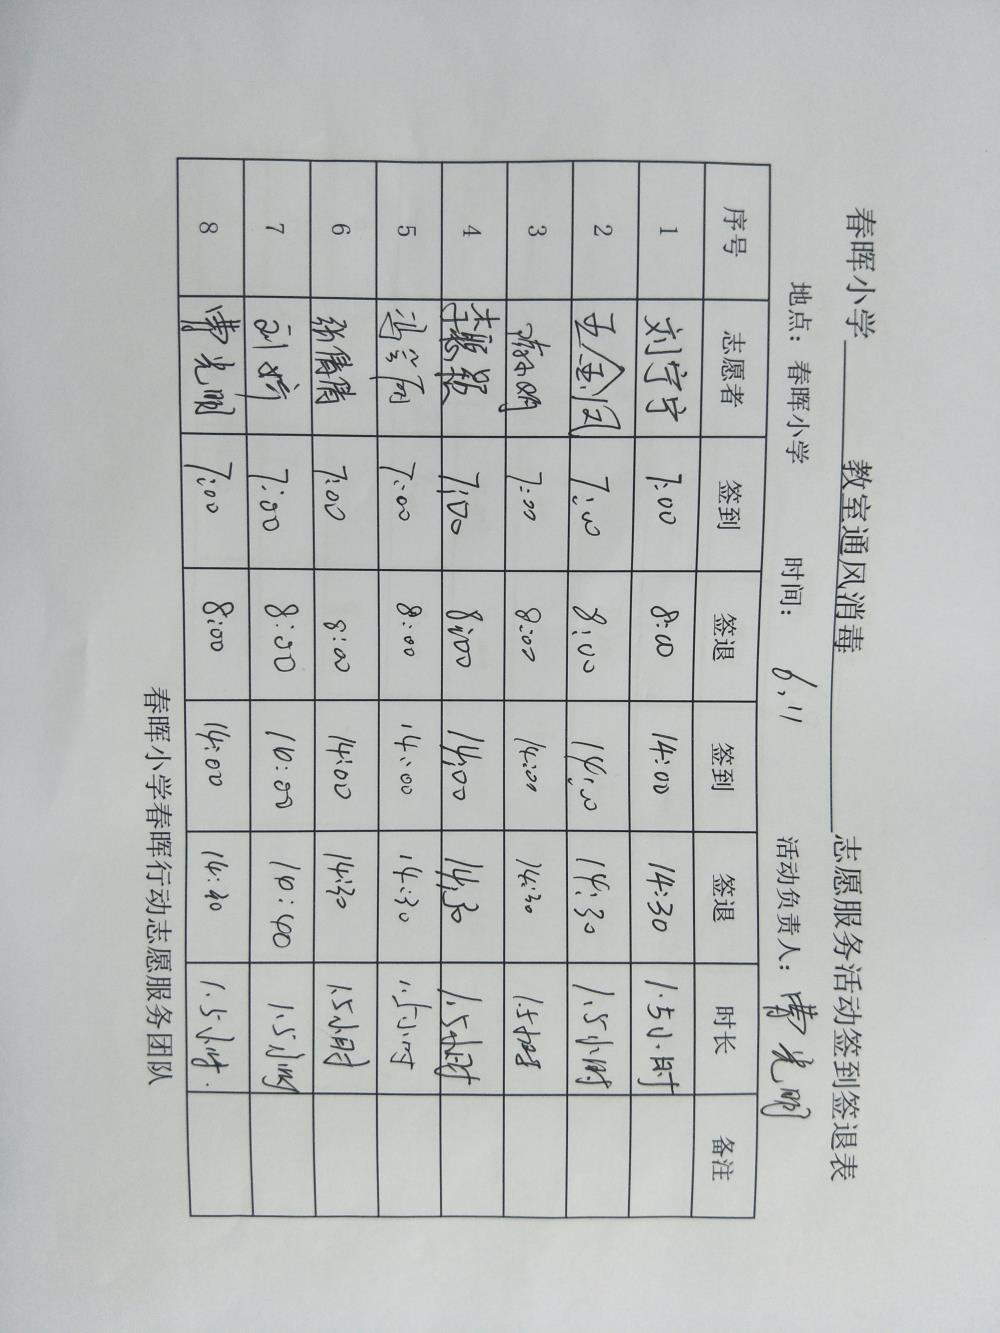 春晖小学 教室通风消毒 志愿服务活动签到签退表
地点：春晖小学 时间：6.11 活动负责人：曹光明
序号 志愿者 签到 签退 签到 签退 时长 备注
1 刘宁宁 7:00 8:00 14:00 14:30 1.5小时
2 王金凤 7:00 8:00 14:00 14:30 1.5小时
3 7:00 8:00 14:00 14:30 1.5小时
4 7:00 8:00 14:00 14:30 1.5小时
5 7:00 8:00 14:00 14:30 1.5小时
6 张倩倩 7:00 8:00 14:00 14:30 1.5小时
7 刘婷 7:00 8:00 1.5小时
8 曹光明 7:00 8:00 14:00 1.5小时.
春晖小学春晖行动志愿服务团队